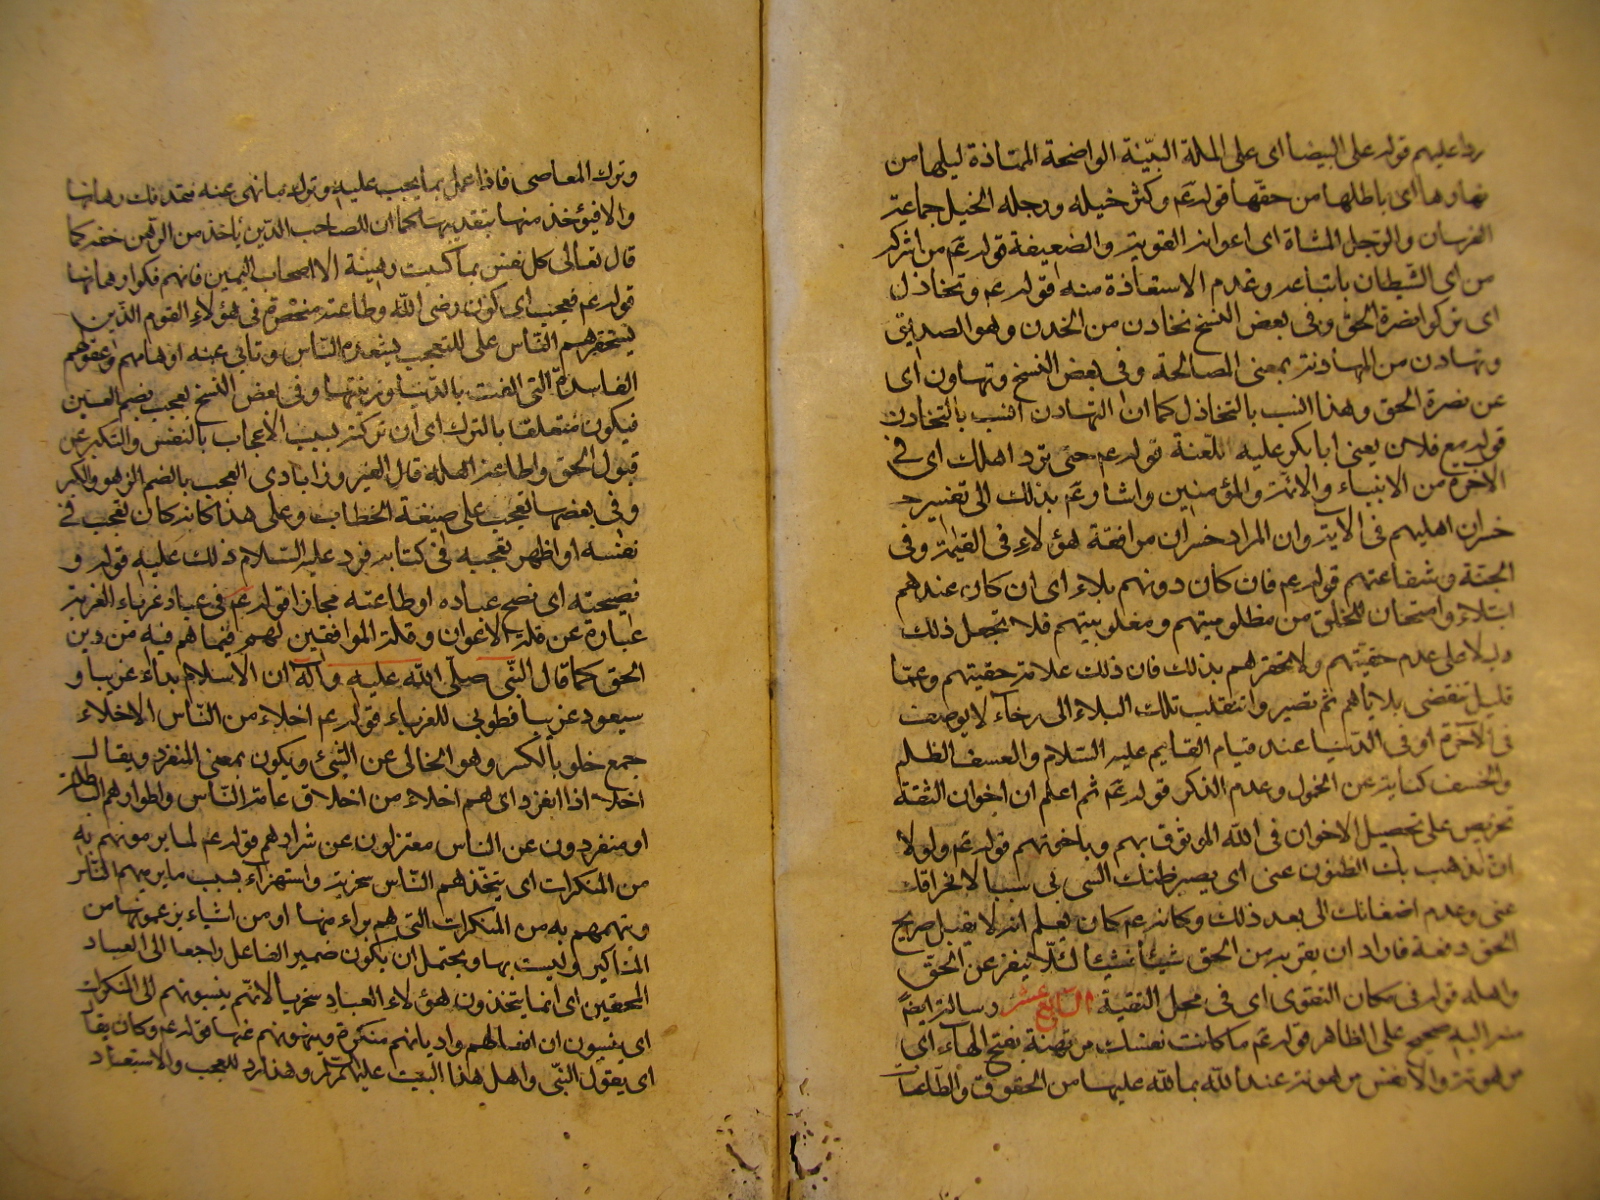 رد اعليهم قوله على البيضا اى على الملة البيّنة الواضحة الممتاذة ليلها من
نهاوها اى باطلها من حقّها قوله عم وكثر خيله ورجله الخيل جماعة
الفرسان والرجل المشاة اى اعوانه القوية والضعيفة قوله عم من اشرك
من اى الشيطان باتباعه وعدم الاستعاذة منه قوله عم وتخاذل
اى تركوا نصرة الحق وفى بعض النسخ تخادن من الخدن وهو الصديق
وتهادن من المهادنة بمعنى المصالحة وفى بعض النسخ وتهاون اى
عن نصرة الحق وهذا انسب بالتخاذل كما ان التهادن انسب بالتخادن
قوله مع فلان يعنى ابا بكر عليه اللعنة قوله عم حتى ترد اهلك اى فى
الآخرة من الانبياء والائمة والمؤمنين واشار عم بذلك الى تفسير
خسران اهليهم فى الآية وان المراد خسران مرافقة هؤلاء فى القيمة وفى
الجنة وشفاعتهم قوله عم فان كان دونهم بلاء اى ان كان عندهم
ابتلاء وامتحان للخلق من مظلوميتهم ومغلوبيتهم فلا تجعل ذلك
دليلا على عدم حقيتهم ولا تحقرهم بذلك فان ذلك علامة حقيتهم وعما
قليل تنقضى بلاياهم ثم تصير واتنقلب تلك البلاء الى رخاء لا يوصف
فى الآخرة او فى الدنيا عند قيام القايم عليه السلام والعسف الظلم
والخسف كناية عن الخمول وعدم الذكر قوله عم ثم اعلم ان اخوان الثقة
تحريص على تحصيل الاخوان فى الله الموثوق بهم وباخوتهم قوله عم ولولا
ان تذهب بك الظنون عنى اى يصير ظنك السى بى سببا لانحرافك
عنى وعدم اصغائك الى بعد ذلك وكانه عم كان يعلم انه لا يقبل صريح
الحق دفعة فاراد ان يقربه من الحق شيئا فشيئا لئلا ينفر عن الحق
واهله قوله فى مكان التقوى اى فى محل التقية السابع عشر رسالة ايضا
منه اليه صحيح على الظاهر قوله عم ما كانت نفسك مرتهنة بفتح الهاء اى
مرهونة والانفس مرهونة عند الله بما لله عليها من الحقوق والطاعات
وترك المعاصى فاذا عمل بما يجب عليه وترك ما نهى عنه فقد فك رهانها
والا فيؤخذ منها بتقديرها كما ان لصاحب الدين يأخذ من الرهن حقه كما
قال تعالى كل نفس بما كسبت رهينة الا اصحاب اليمين فانهم فكوا رهانها
قوله عم فعجب اى كون رضى الله وطاعته منحصرة فى هؤلاء القوم الذين
يستحقرهم الناس على للتعجب يستبعده الناس وتابى عنه اوهامهم وعقولهم
الفاسدة التى الفت بالدنيا وزينتها وفى بعض النسخ يعجب بضم العين
فيكون متعلقا بالترك اى ان تركه بسبب الاعجاب بالنفس والتكبر عن
قبول الحق واطاعة اهله قال الفيروزابادى العجب بالضم الزهو والكبر
وفى بعضها تعجب على صيغة الخطاب وعلى هذا كانه كان تعجب فى
نفسه او اظهر تعجبه فى كتابه فرد عليه السلام ذلك عليه قوله و
نصيحته اى نصح عباده او طاعته مجازا قوله عم فى عباد غرباء الغربة
عبارة عن قلة الاعوان وقلة الموافقين لهم فيما هم فيه من دين
الحق كما قال النبى صلى الله عليه وآله ان الاسلام بداء غريبا و
سيعود غريبا فطوبى للغرباء قوله عم اخلاء من الناس الاخلاء
جمع خلو بالكسر وهو الخالى عن الشئ ويكون بمعنى المنفرد ويقال
اخلا اذا انفرد اى هم اخلاء من اخلاق عامة الناس واطوارهم الباطلة
او منفردون عن الناس معتزلون عن شرارهم قوله عم لما يرمونهم به
من المنكرات اى يتخذهم الناس سخرية واستهزاء بسبب ما يرميهم الناس
ويتهمهم به من المنكرات التى هم براء منها او من اشياء يزعمونها من
المناكير وليست بها ويحتمل ان يكون ضمير الفاعل راجعا الى العباد
المحقين اى انما يتخذون هؤلاء العباد سخريا لانهم ينسبونهم الى المنكرات
اى ينسبون ان افعالهم واديانهم منكرة وينهونهم عنها قوله عم وكان يقال
اى يقول النبى واهل هذا البيت عليهم السلام وهذا رد للعجب والاستبعاد